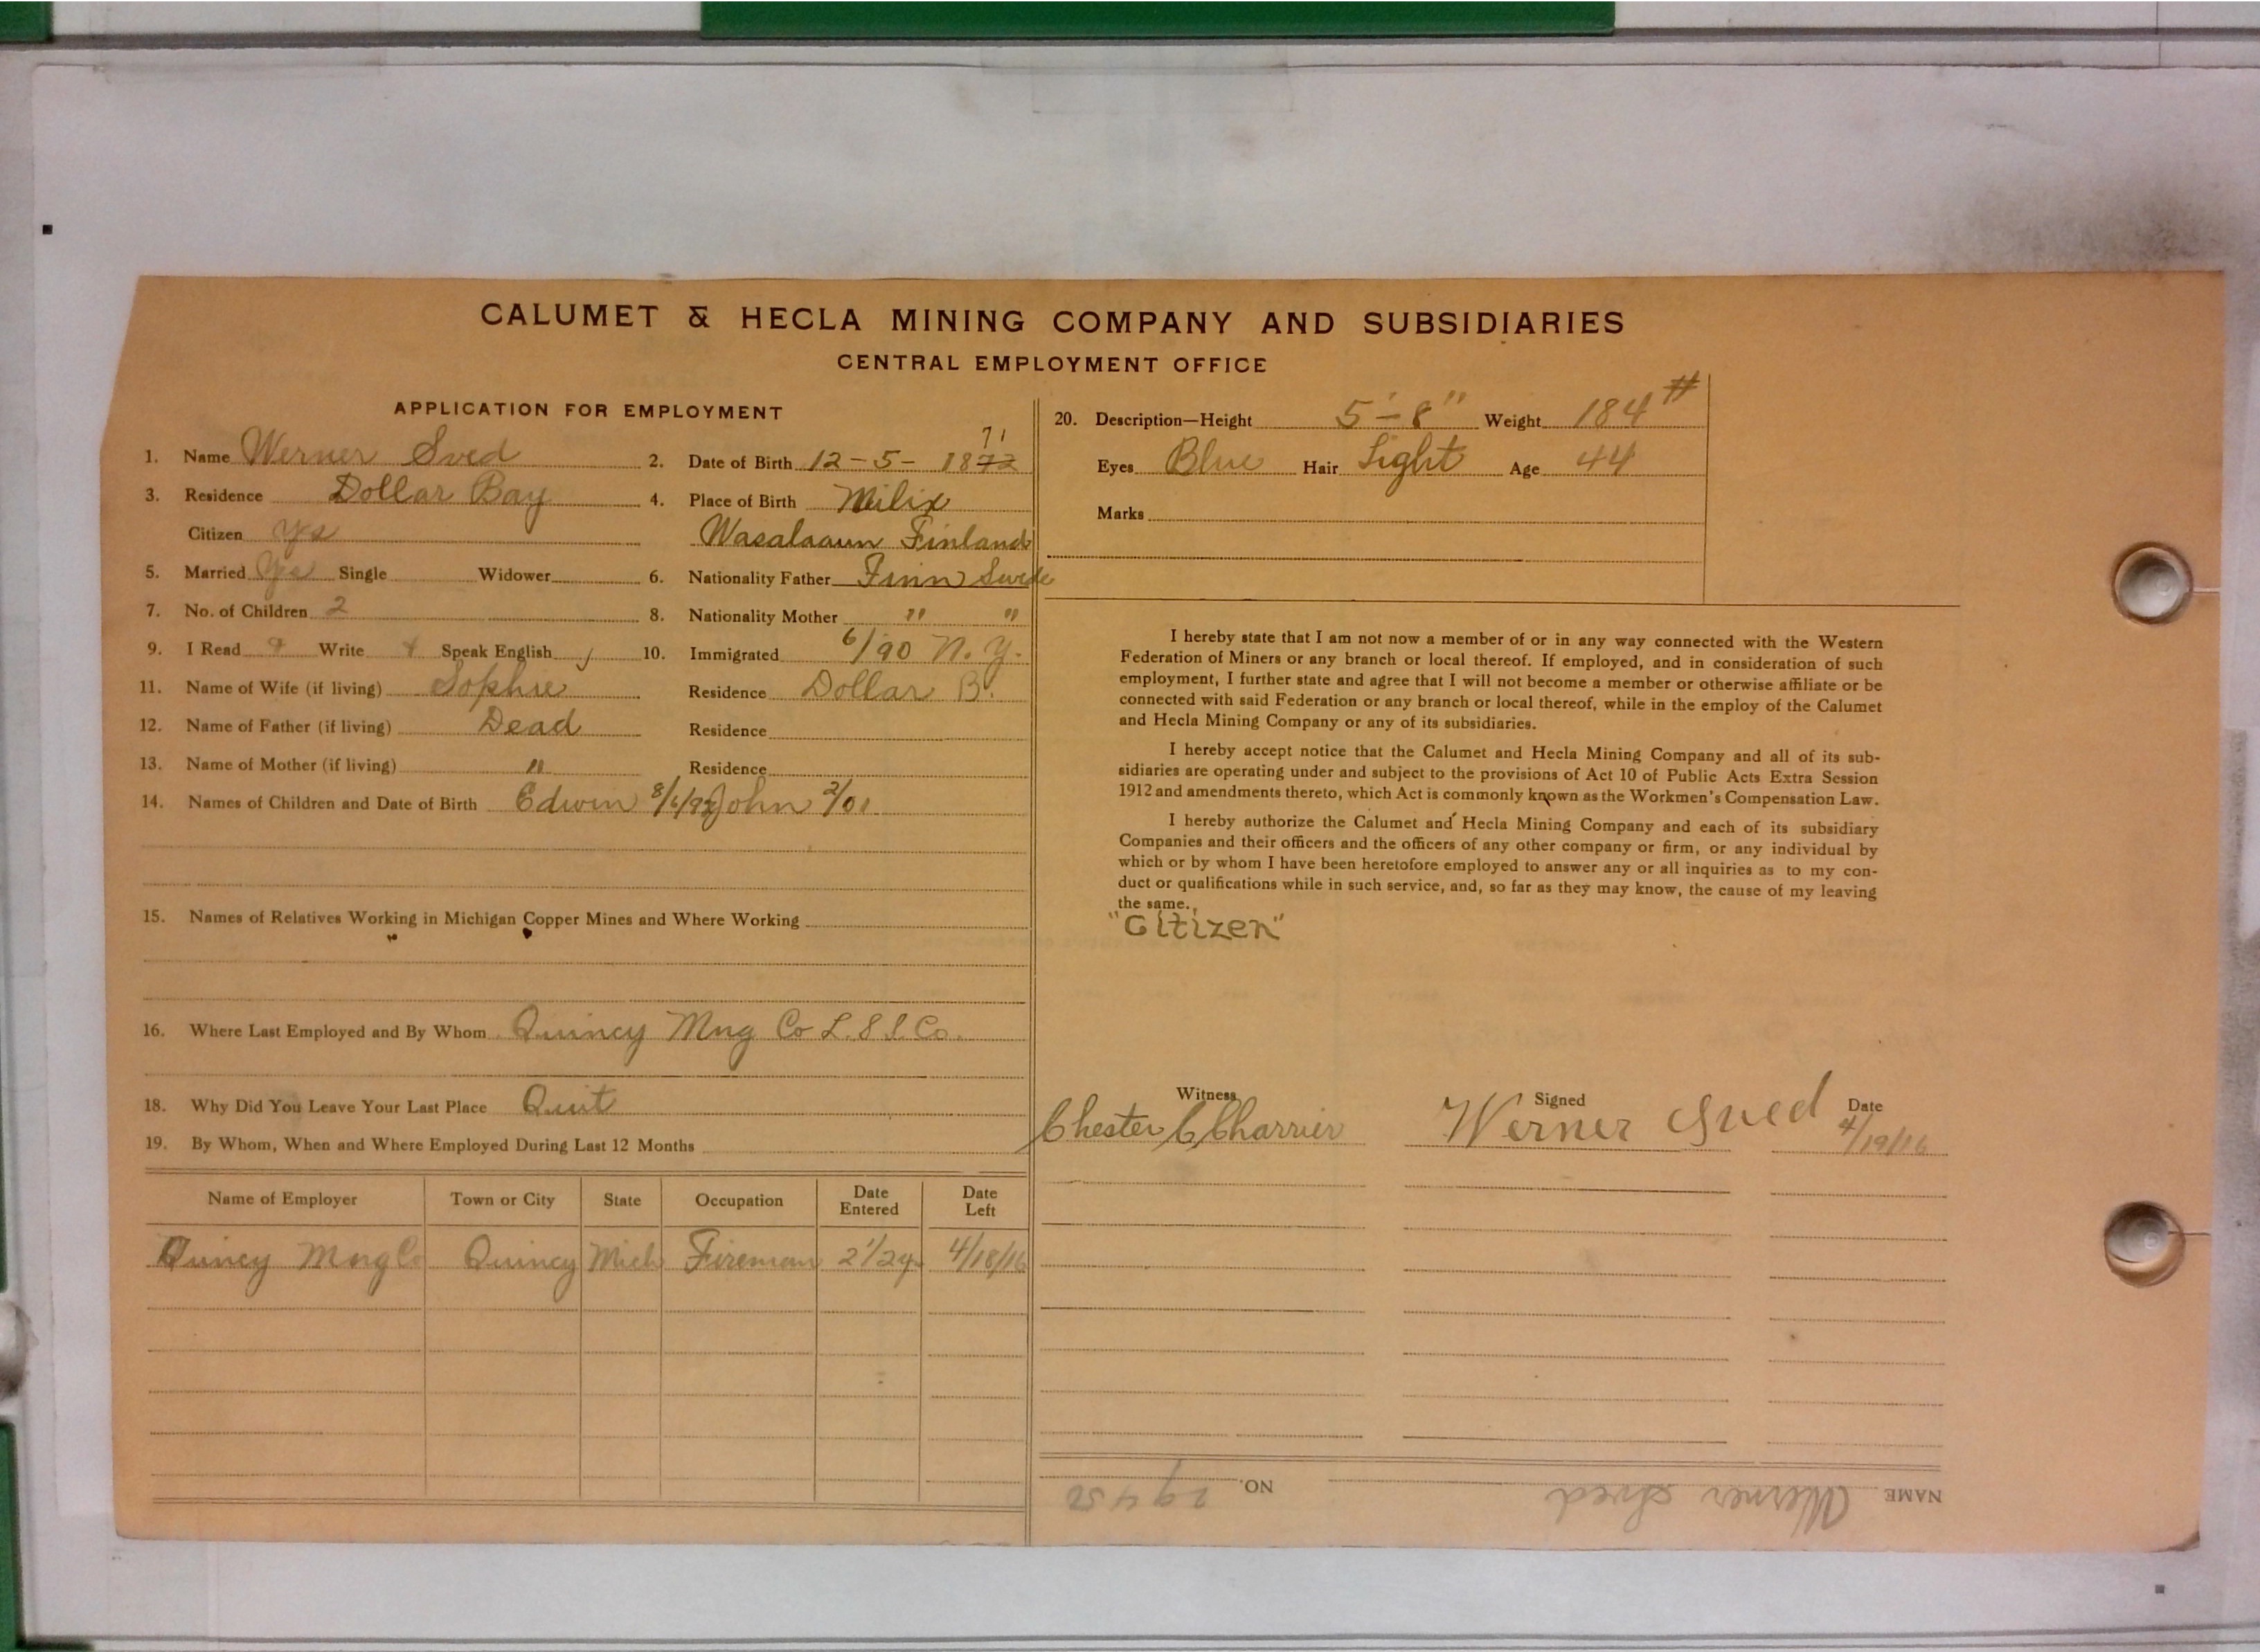 CALUMET & HECLA MINING COMPANY AND SUBSIDIARIES
CENTRAL EMPLOYMENT OFFICE
APPLICATION FOR EMPLOYMENT
1. Name Werner Sved
2. Date of Birth 12-5-1872 71
3. Residence Dollar Bay
4. Place of Birth Milix
Citizen Yes
Wasalaaun Finland
5. Married Yes Single Widower
6. Nationality Father Finn Swede
7. No. of Children 2
8. Nationality Mother " "
9. I Read Write Speak English
10. Immigrated 6/90 N.Y.
11. Name of Wife (if living) Sophie
Residence Dollar B.
12. Name of Father (if living) Dead
Residence
13. Name of Mother (if living) "
Residence
14. Names of Children and Date of Birth Edwin John 2/01
15. Names of Relatives Working in Michigan Copper Mines and Where Working
16. Where Last Employed and By Whom Quincy Mng Co L.S.S.Co.
18. Why Did You Leave Your Last Place Quit
19. By Whom, When and Where Employed During Last 12 Months
Name of Employer Town or City State Occupation Date Entered Date Left
Quincy Mng Co Quincy Mich Fireman 4/18/16
20. Description—Height 5'-8" Weight 184#
Eyes Blue Hair Light Age 44
Marks
I hereby state that I am not now a member of or in any way connected with the Western
Federation of Miners or any branch or local thereof. If employed, and in consideration of such
employment, I further state and agree that I will not become a member or otherwise affiliate or be
connected with said Federation or any branch or local thereof, while in the employ of the Calumet
and Hecla Mining Company or any of its subsidiaries.
I hereby accept notice that the Calumet and Hecla Mining Company and all of its sub-
sidiaries are operating under and subject to the provisions of Act 10 of Public Acts Extra Session
1912 and amendments thereto, which Act is commonly known as the Workmen's Compensation Law.
I hereby authorize the Calumet and Hecla Mining Company and each of its subsidiary
Companies and their officers and the officers of any other company or firm, or any individual by
which or by whom I have been heretofore employed to answer any or all inquiries as to my con-
duct or qualifications while in such service, and, so far as they may know, the cause of my leaving
the same.
"Citizen"
Witness Signed Date
Chester C Charrier Werner Sved 4/19/16
NAME Werner Sved NO. 29452